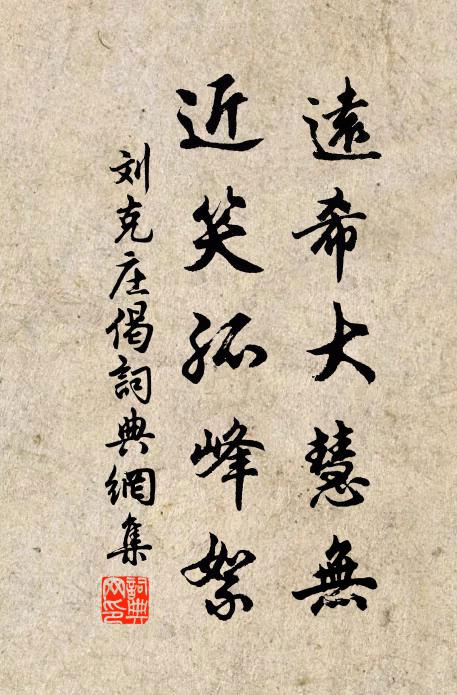 遠希大慧無
近笑孤峰絮
刘克庄偈詞典網集
詞典網印